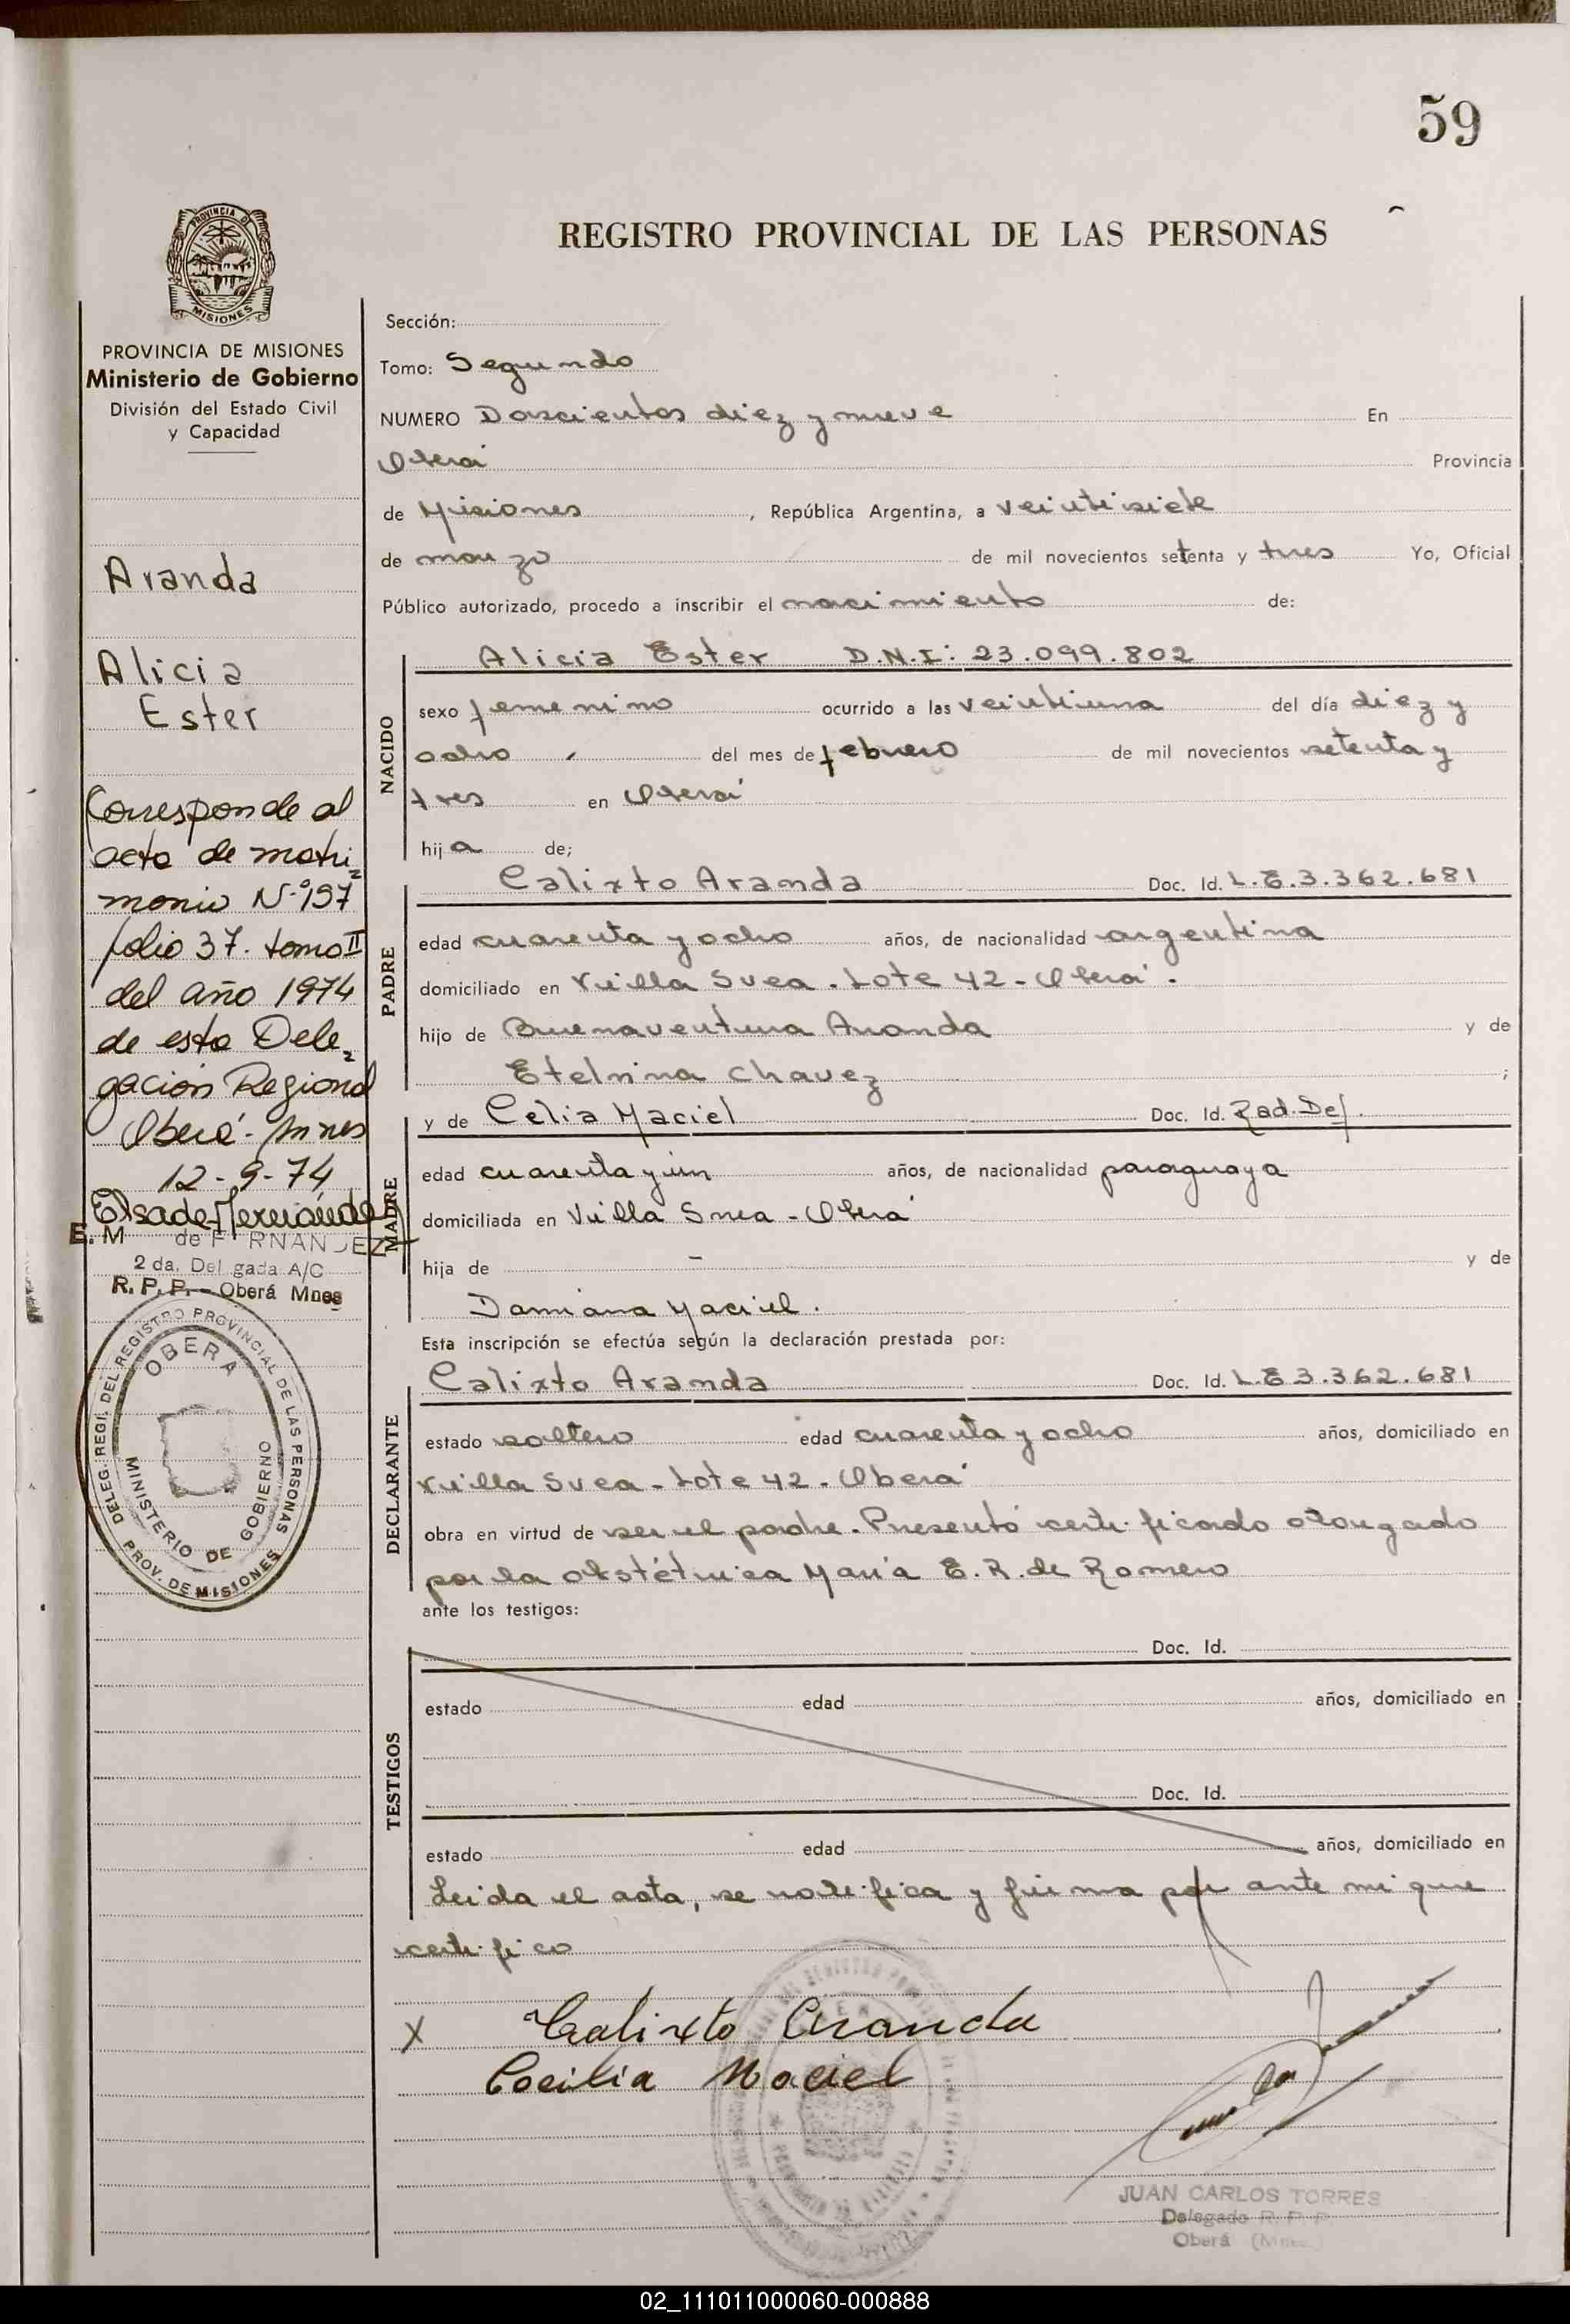 59
PROVINCIA DE
MISIONES
REGISTRO PROVINCIAL DE LAS PERSONAS
PROVINCIA DE MISIONES
Ministerio de Gobierno
División del Estado Civil
y Capacidad
Aranda
Alicia
Ester
Corresponde al
acta de matri
monio Nº 197
folio 37. tomo II
del año 1974
de esta Dele
gación Regional
Oberá - Mnes
12-9-74
Elsa de Fernández
E. M de F RNANDEZ
2 da. Del gada A/C
R. P. P. - Oberá Mnes
DELEG. REGI. DEL REGISTRO PROVINCIAL DE LAS PERSONAS
OBERA
MINISTERIO DE GOBIERNO
PROV. DE MISIONES
Sección:
Tomo: Segundo
NUMERO Doscientos diez y nueve En
Oberá Provincia
de Misiones, República Argentina, a veintisiete
de marzo de mil novecientos setenta y tres Yo, Oficial
Público autorizado, procedo a inscribir el nacimiento de:
NACIDO
Alicia Ester D.N.I: 23.099.802
sexo femenino ocurrido a las veintiuna del día diez y
ocho del mes de febrero de mil novecientos setenta y
tres en Oberá
hija de;
PADRE
Calixto Aranda Doc. Id. L.E.3.362.681
edad cuarenta y ocho años, de nacionalidad argentina
domiciliado en Villa Svea - Lote 42 - Oberá.
hijo de Buenaventura Aranda y de
Etelvina Chavez ;
MADRE
y de Celia Maciel Doc. Id. Rad. Def.
edad cuarenta y un años, de nacionalidad paraguaya
domiciliada en Villa Svea - Oberá
hija de - y de
Damiana Maciel.
Esta inscripción se efectúa según la declaración prestada por:
DECLARANTE
Calixto Aranda Doc. Id. L.E 3.362.681
estado soltero edad cuarenta y ocho años, domiciliado en
Villa Svea - Lote 42 - Oberá
obra en virtud de ser el padre. Presentó certificado otorgado
por la obstétrica María E. R. de Romero
ante los testigos:
TESTIGOS
Doc. Id.
estado edad años, domiciliado en
Doc. Id.
estado edad años, domiciliado en
Leida el acta, se notifica y firma por ante mi que
certifico
X Calixto Aranda
Cecilia Maciel
JUAN CARLOS TORRES
Delegado R. P. P.
Oberá (Mnes.)
02_111011000060-000888